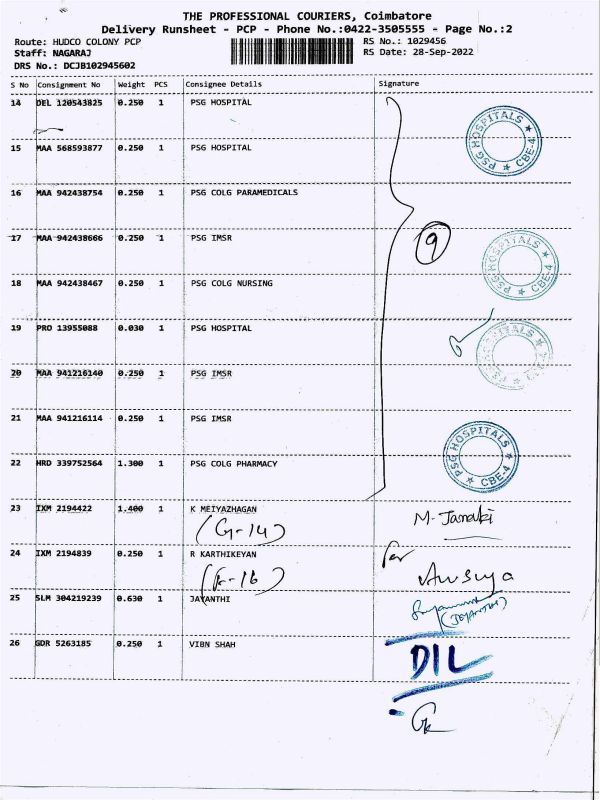 THE PROFESSIONAL COURIERS, Coimbatore
Delivery Runsheet - PCP - Phone No.:0422-3505555 - Page No.:2
Route: HUDCO COLONY PCP RS No.: 1029456
Staff: NAGARAJ RS Date: 28-Sep-2022
DRS No.: DCJB102945602
S No Consignment No Weight PCS Consignee Details Signature
14 DEL 120543825 0.250 1 PSG HOSPITAL
PSG HOSPITALS ★ CBE-4 ★
15 MAA 568593877 0.250 1 PSG HOSPITAL
16 MAA 942438754 0.250 1 PSG COLG PARAMEDICALS
17 MAA 942438666 0.250 1 PSG IMSR
9
PSG HOSPITALS ★ CBE-4 ★
18 MAA 942438467 0.250 1 PSG COLG NURSING
19 PRO 13955088 0.030 1 PSG HOSPITAL
PSG HOSPITALS
20 MAA 941216140 0.250 1 PSG IMSR
21 MAA 941216114 0.250 1 PSG IMSR
PSG HOSPITALS ★ CBE-4 ★
22 HRD 339752564 1.300 1 PSG COLG PHARMACY
23 IXM 2194422 1.400 1 K MEIYAZHAGAN M. Janaki
(G-14)
24 IXM 2194839 0.250 1 R KARTHIKEYAN for
Anusuya
25 SLM 304219239 0.630 1 JAYANTHI
(JEYANTHI)
26 GDR 5263185 0.250 1 VIBN SHAH DIL